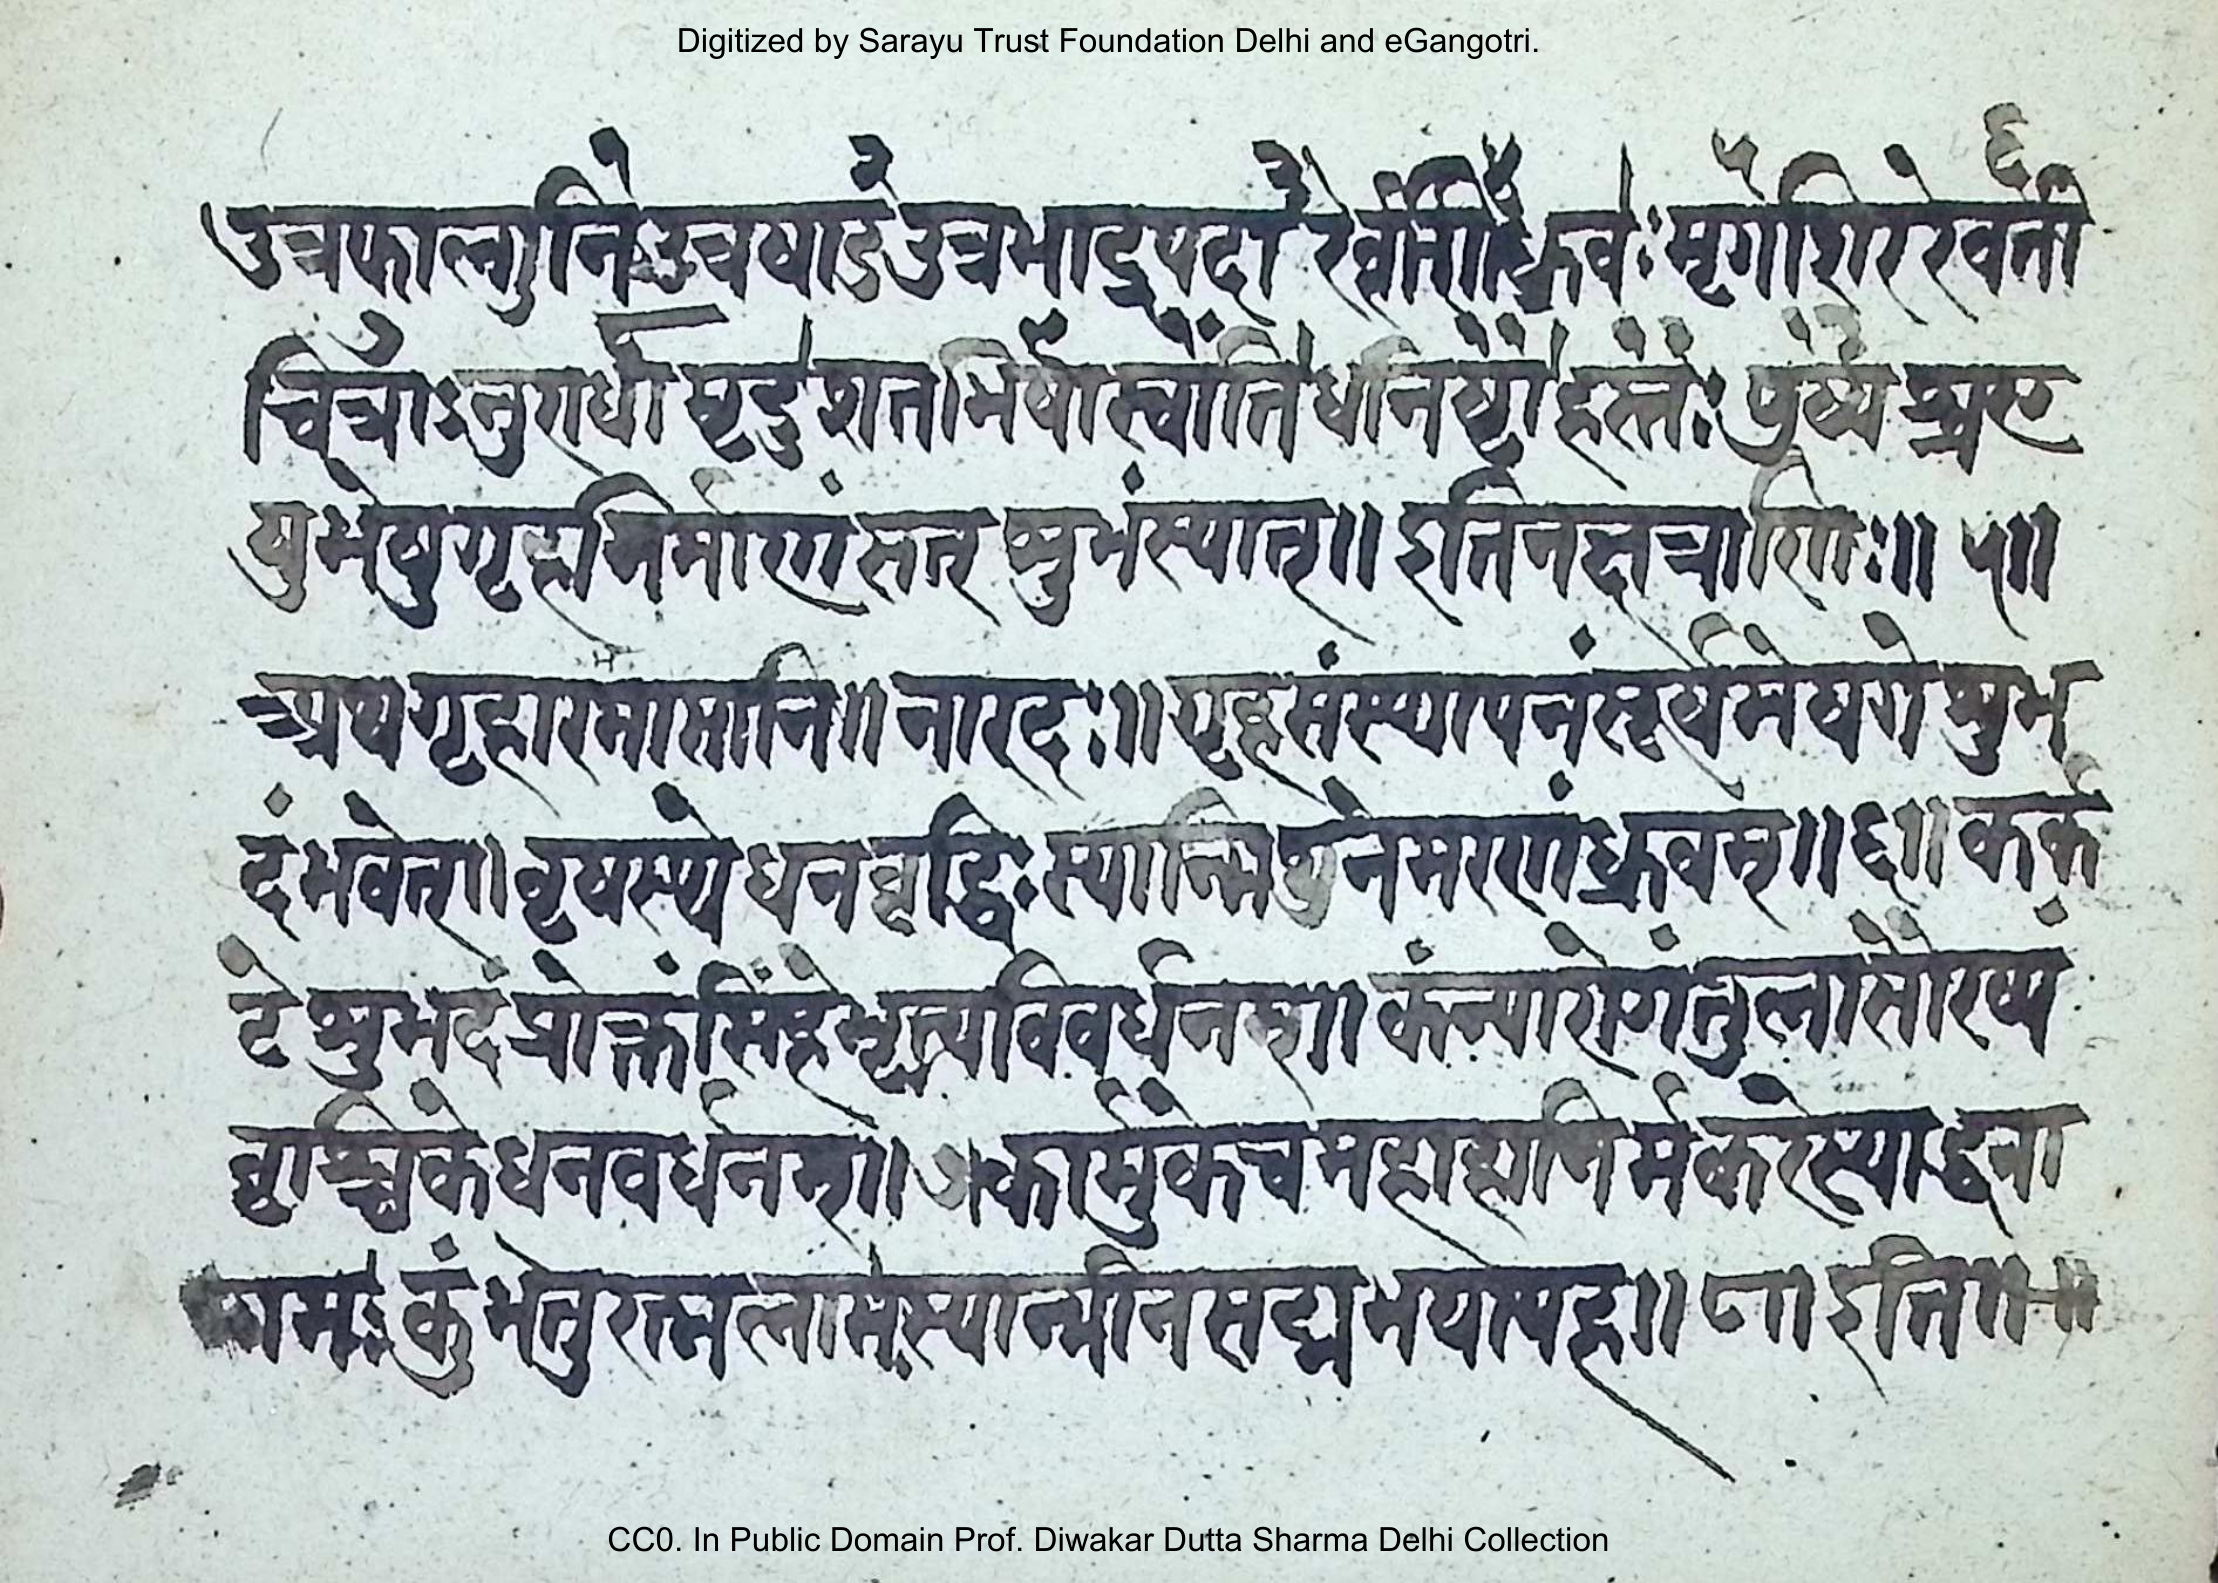 Digitized by Sarayu Trust Foundation Delhi and eGangotri.
उत्रफाल्गुनि उत्रषाडे उत्रभाद्रपदा ध्रुवः मृगशिर रेवती
चित्राऽनुराधा मृदु शतभिषा स्वाति धनिष्टा हस्तः पुष्य
युभेषुगृहनिर्माणं सत शुभंस्यात्॥ इतिनक्षत्राणिः॥ ५॥
अथगृहारमासानि॥ नारदः॥ गृहसंस्थापनंसूर्यमेषगे शुभ
दंभवेत्॥ वृषस्थे धनवृद्धिः स्यान्मिथुनेमरणंध्रुवम्॥ ६॥ कर्क
टे शुभदं प्रोक्तं सिंहेभृत्यविवर्धनम्॥ कंन्यारोगंतुलासौरष्यं
वृश्चिकेधनवर्धनम्॥ ७।कार्मुकेचमहाहानिर्मकरेस्याद्धना
गमः कुंभेतुरत्नलाभस्यान्मीनसद्मभयापह॥ ८॥ इति
CC0. In Public Domain Prof. Diwakar Dutta Sharma Delhi Collection